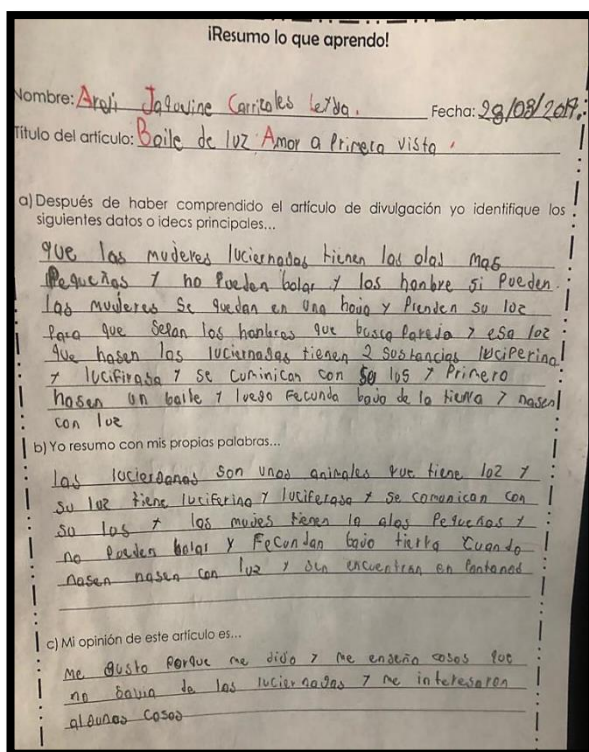 ¡Resumo lo que aprendo!
Nombre: Areli Jaquvine Carrizoles Leyda.
Fecha: 28/08/2019.
Título del artículo: Baile de luz Amor a Primera vista.
a) Después de haber comprendido el artículo de divulgación yo identifique los
siguientes datos o ideas principales...
que las muderes luciernadas tienen las olas mas
Pequeñas y no Pueden bolar y los honbre si Pueden.
las muderes Se quedan en una hoja y Prenden su loz
Para que sepan los honbres que busca Pareja y esa loz
que hasen las luciernagas tienen 2 sustancias luciPerina
y lucifirasa y se cuminican con su los y Primero
hasen un baile y luego Fecunda bajo de la tierra y nasen
con luz
b) Yo resumo con mis propias palabras...
las lucierganas son unos animales que tiene loz y
su loz tiene luciferina y luciferasa y se comonican con
so los y las mujes tienen la alas Pequeñas y
no Pueden bolar y Fecundan bajo tierra cuando
nasen nasen con luz y sen encuentran en Pantanos
c) Mi opinión de este artículo es...
me gusto Porque me dijo y me enseño cosas que
no savia de las luciernagas y me interesaron
algunas cosas